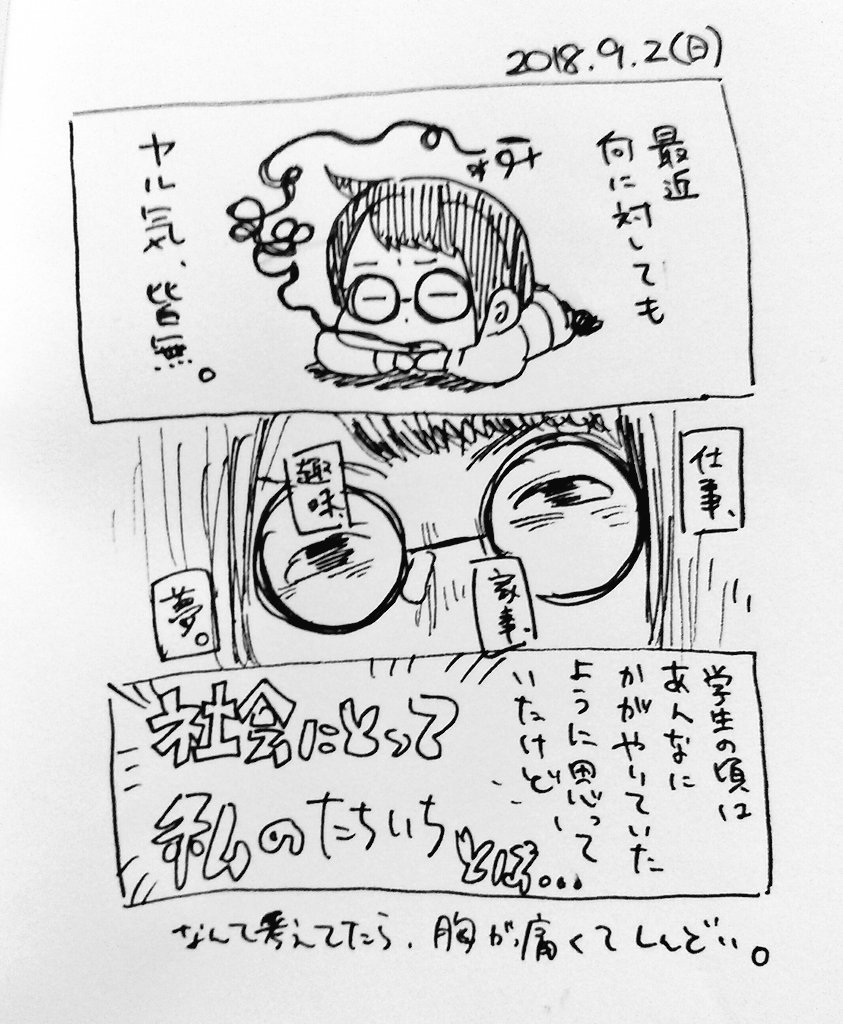 2018.9.2(日)
最近
何に対しても
ヤル気、皆無。
仕事、
家事、
趣味、
夢。
学生の頃は
あんなに
かがやいていた
ように思って
いたけど、
社会にとって
私のたちいち
とは...
なんて考えてたら、胸が痛くてしんどい。